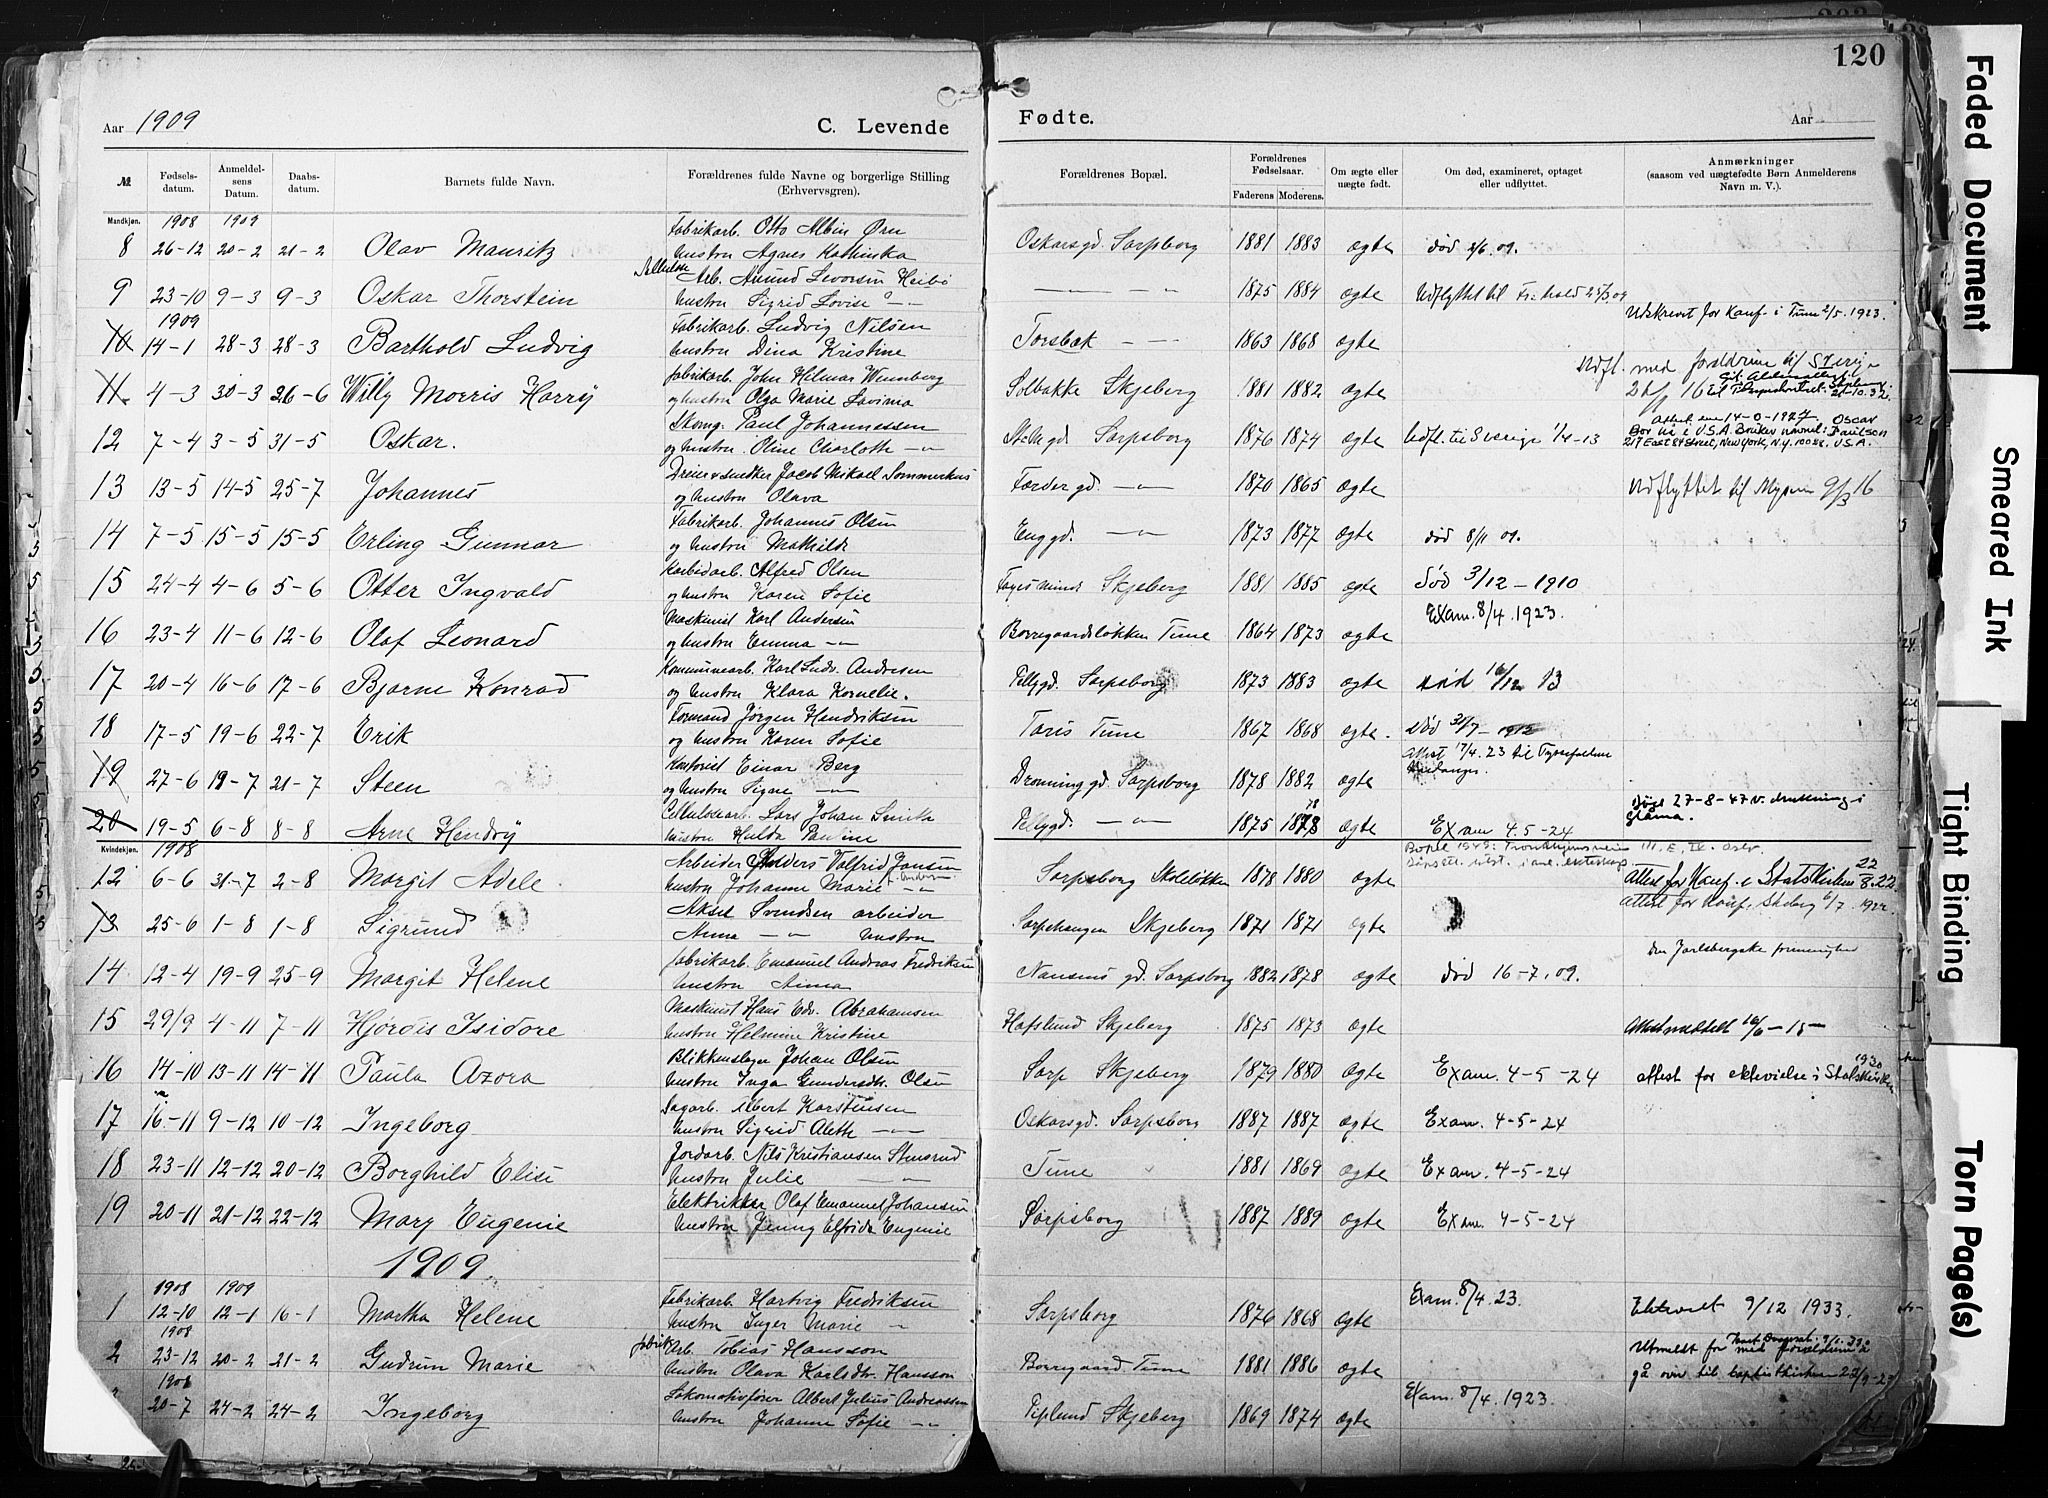 120
Aar 1909 C. Levende Fødte. Aar
№ Fødselsdatum. Anmeldelsens Datum. Daabsdatum. Barnets fulde Navn. Forældrenes fulde Navne og borgerlige Stilling (Erhvervsgren). Forældrenes Bopæl. Forældrenes Fødselsaar. Faderens Moderens. Om ægte eller uægte født. Om død, examineret, optaget eller udflyttet. Anmærkninger (saasom ved uægtefødte Børn Anmelderens Navn m. V.).
Mandkjøn. 1908 1909
8 26-12 20-2 21-2 Olav Mauritz Fabrikarb. Otto Albin Ørn Oskarsgd. Sarpsborg 1881 1883 ægte død 2/6 09.
hustru Agnes Kathinka
9 23-10 9-3 9-3 Oskar Thorstein Cellulose Arb. Amund Sevorsen Heibø 1875 1884 ægte Udflyttet til Fr.hald 25/3 09
hustru Sigrid Lovise
1909
10 14-1 28-3 28-3 Barthold Ludvig Fabrikarb. Ludvig Nilsen Torsbæk 1863 1868 ægte Udskrevet for Konf. i Tune 2/5 1923.
hustru Dina Kristine
11 4-3 30-3 26-6 Willy Morris Harry Fabrikarb. John Hilmar Wennberg Solbakke Skjeberg 1881 1882 ægte Udfl. med forældrene til Sverige
og hustru Olga Marie Lovima
12 7-4 3-5 31-5 Oskar. Paul Johannessen St.Mgd. Sarpsborg 1876 1874 ægte Udfl. til Sverige 1/4-13 Bor nå i U.S.A. Bruker navnet: Oscar Paulson
og hustru Oline Charloth 217 East 84 Street, New York, N.Y. 10028. U.S.A.
13 13-5 14-5 25-7 Johannes Dreier & snedker Jacob Mikael Sommerhus Færder gd. 1870 1865 ægte Udflyttet til Mysen 9/3 16
og hustru Olava
14 7-5 15-5 15-5 Erling Gunnar Fabrikarb. Johannes Olsen Enggd. 1873 1877 ægte død 8/11 09.
og hustru Mathilde
15 24-4 4-6 5-6 Otter Ingvald Karbidarb. Alfred Olsen Skjeberg 1881 1885 ægte død 3/12-1910
og hustru Karen Sofie
16 23-4 11-6 12-6 Olaf Leonard Maskinist Karl Andersen Borregaardsløkken Tune 1864 1873 ægte Exam. 8/4. 1923.
og hustru Emma
17 20-4 16-6 17-6 Bjarne Konrad Kommunearb. Karl Ludv. Andresen Pellygd. Sarpsborg 1873 1883 ægte død 16/12 13
og hustru Klara Kornelie.
18 17-5 19-6 22-7 Erik Formand Jørgen Hendriksen Taris Tune 1867 1868 ægte. død 31/7-1912
og hustru Karen Sofie
19 27-6 19-7 21-7 Steen Kontorist Einar Berg Dronning gd. Sarpsborg 1878 1882 ægte Attest 17/4. 23 til Tyssedalene Hardanger.
og hustru Signe
20 19-5 6-8 8-8 Arne Hendry Cellulosearb. Lars Johan Smith Pellygd. 1875 1878 ægte Exam 4-5-24 Døge 27-8-47 v. drukning i Glåma.
hustru Hulda Pauline
Kvindekjøn. 1908
12 6-6 31-7 2-8 Margit Adele Arbeider Anders Valfrid Jansen Sarpsborg Skoleløkken 1878 1880 ægte Attest for Konf. i Statskirken 22/8.22
hustru Johanne Marie
13 25-6 1-8 1-8 Sigrund Aksel Svendsen arbeider Sarpehaugen Skjeberg 1871 1871 ægte Attest for Konf. Skeberg 6/7. 1922.
Anna hustru
14 12-4 19-9 25-9 Margit Helene Fabrikarb. Emanuel Andreas Fredriksen Nansens gd. Sarpsborg 1882 1878 ægte død 16-7.09. den Jarlsbergske frimenighed
hustru Anna
15 29/9 4-11 7-11 Hjørdis Isidore Maskinist Hans Edv. Abrahamsen Hafslund Skjeberg 1875 1873 ægte Attest meddelt 16/6-15
hustru Helmine Kristine
16 14-10 13-11 14-11 Paula Azora Blikkenslager Johan Olsen Sarp Skjeberg 1879 1880 ægte Exam. 4-5-24 attest for ektevielse i Statskirken 1930
hustru Inga Gundersdtr. Olsen
17 16-11 9-12 10-12 Ingeborg Sagarb. Albert Karstensen Oskarsgd. Sarpsborg 1887 1887 ægte Exam. 4-5-24
hustru Sigrid Aleth
18 23-11 12-12 20-12 Borghild Elise Jordarb. Nils Kristiansen Stensrud Tune 1881 1869 ægte Exam. 4-5-24
hustru Julie
19 20-11 21-12 22-12 Mary Eugenie Elektriker Olaf Emanuel Johansen Sarpsborg 1887 1889 ægte Exam. 4-5-24
hustru Jenny Elfrida Eugenie
1909.
1908 1909
1 12-10 12-1 16-1 Martha Helene Fabrikarb. Hartvig Fredriksen Sarpsborg 1876 1868 ægte Exam. 8/4. 23. Ekteviet 9/12 1933.
hustru Inger Marie
1908
2 23-12 20-2 21-2 Gudrun Marie fabrik Arb. Tobias Hansson Borregaard Tune 1881 1886 ægte Utmeldt for med forældrene å
hustru Olava Karlsdtr. Hansson gå over til baptistkirken
1908
20-7 24-2 24-2 Ingeborg Lokomotivfører Albert Julius Andreassen Piplund Skjeberg 1869 1874 ægte Exam. 8/4. 1923.
hustru Johanne Sofie
Faded Document
Smeared Ink
Tight Binding
Torn Page(s)